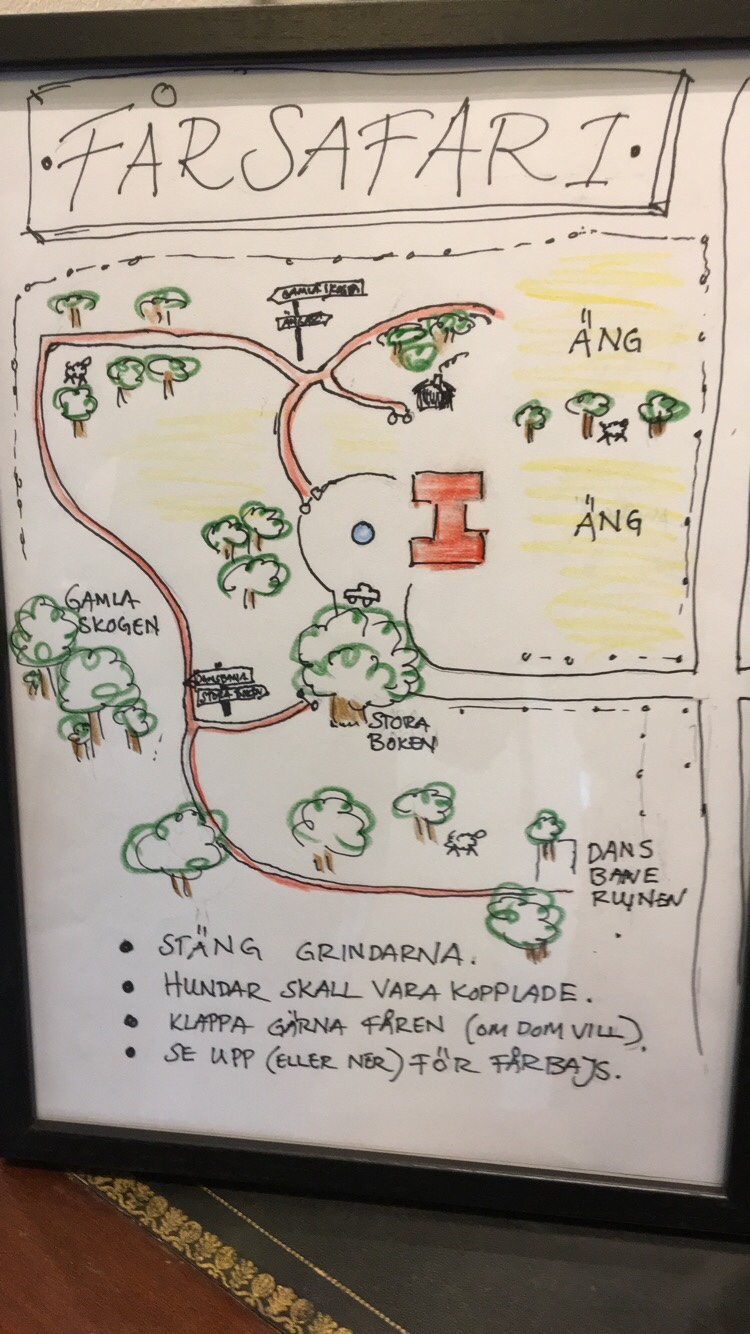 FÅRSAFARI
GAMLA SKOGEN
ÄNGEN
ÄNG
ÄNG
GAMLA
SKOGEN
DANSBANA
STORA BOKEN
STORA
BOKEN
DANS
BANE
RUINEN
• STÄNG GRINDARNA.
• HUNDAR SKALL VARA KOPPLADE.
• KLAPPA GÄRNA FÅREN (OM DOM VILL).
• SE UPP (ELLER NER) FÖR FÅRBAJS.